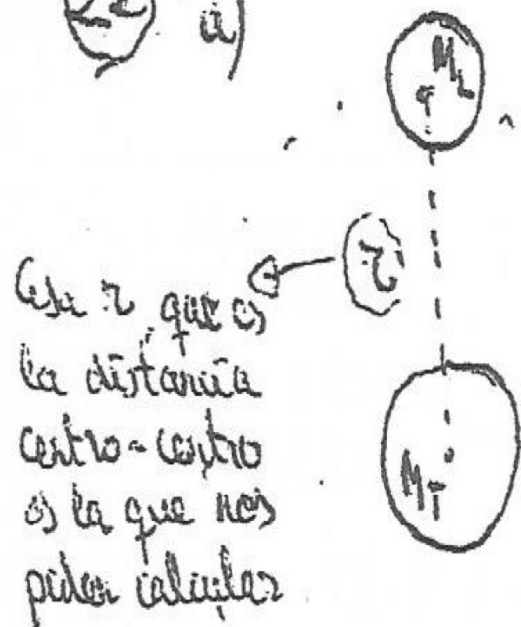 a)
M_L
r
Esa r que es
la distancia
centro-centro
es la que nos
piden calcular
M_T